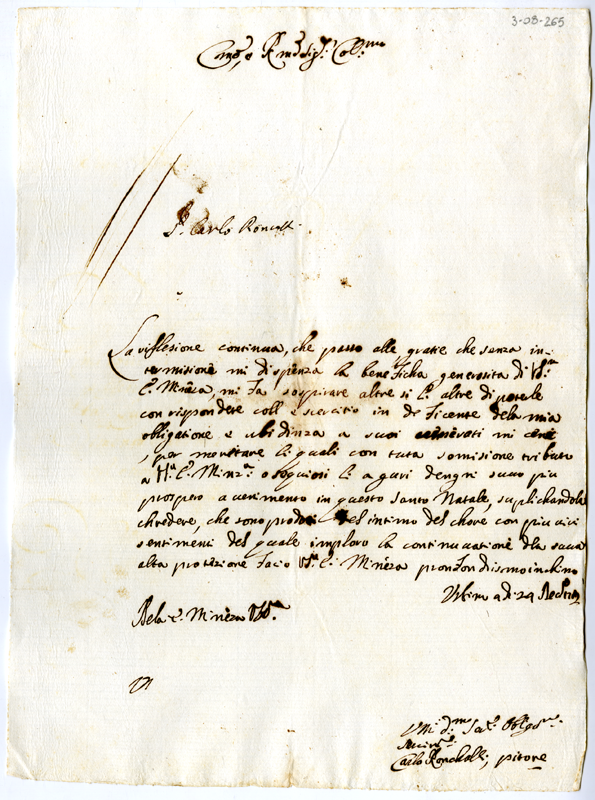 3-08-265
Em.o e R.mo Sig.r Col.mo
S.r Carlo Roncalli
La riflesione continua, che passo alle gratie che senza in-
termisione mi dispenza la beneficha generosita di V.ra
E. Minēza, mi fa sospirare altre si le altre di poterle
con rispondere coll esercitio in deficente dela mia
obligatione e ubidinza a suoi
, per mostrare li quali con tuta somisione tributo
a V.ra E. Minz.a osequiosi li aguri dengni suuo piu
prospero avenimento in questo Santo Natale, suplichandola
chredere, che sono prodoti del intimo del chore con piu vivi
sentimeni del quale imploro la continuvatione dla suua
alta protezione facio V.ra E. Minēza profondissmo inchino
Urbino adi 24
Dela E. Minēza V.ra
Um.mo d.mo Oblg.mo
Carlo Ronchalli, pitore